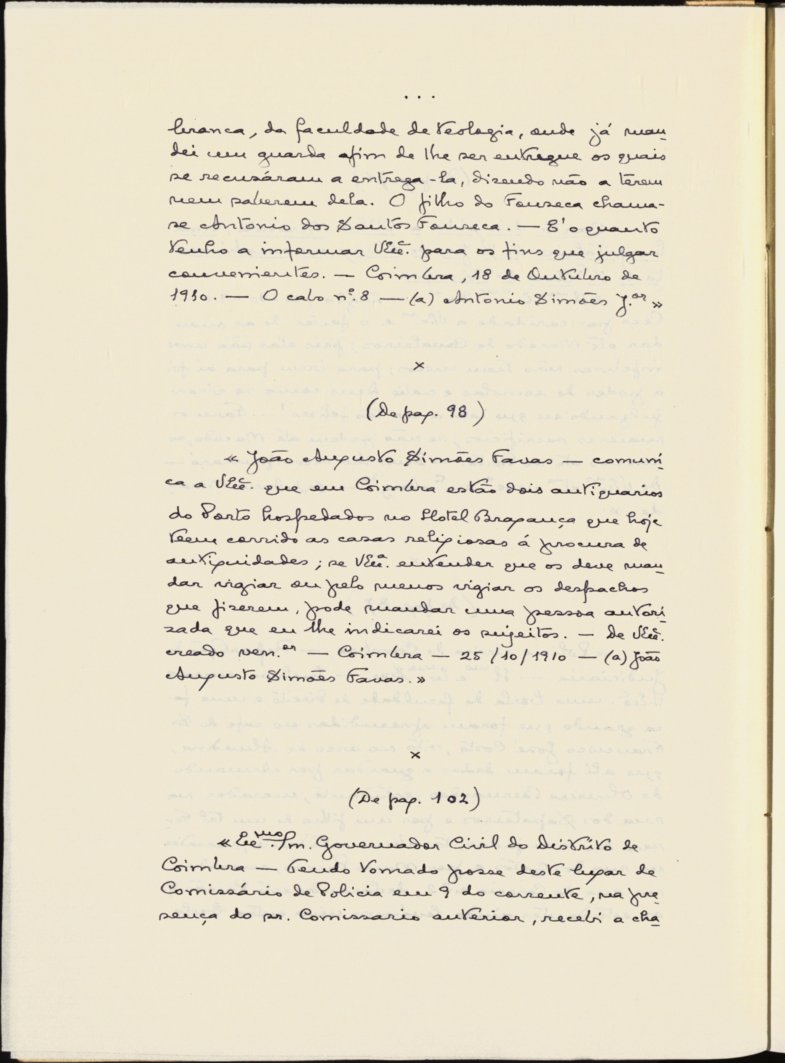 ...
branca, da faculdade de teologia, onde já man-
dei um guarda afim de lhe ser entregue os quais
se recusáram a entrega-la, dizendo não a têrem
nem saberem dela. O filho do Fonseca chama-
se Antonio dos Santos Fonseca. — E' o quanto
tenho a informar V.Exª. para os fins que julgar
convenientes. — Coimbra, 18 de Outubro de
1910. — O cabo nº. 8 — (a) Antonio Simões J.or »
×
(De pag. 98)
« João Augusto Simões Favas — comuni-
ca a V.Exª. que em Coimbra estão dois antiquarios
do Porto hospedados no Hotel Bragança que hoje
teem corrido as casas religiosas á procura de
antiguidades; se V.Exª. entender que os deve man-
dar vigiar ou pelo menos vigiar os despachos
que fizerem, pode mandar uma pessoa autori-
zada que eu lhe indicarei os sujeitos. — De V.Exª.
creado ven.or — Coimbra — 25/10/1910 — (a) João
Augusto Simões Favas. »
×
(De pag. 102)
« Exmo. Sr. Governador Civil do Distrito de
Coimbra — Tendo tomado posse deste lugar de
Comissário de Policia em 9 do corrente, na pre-
sença do sr. Comissario anterior, recebi a cha-